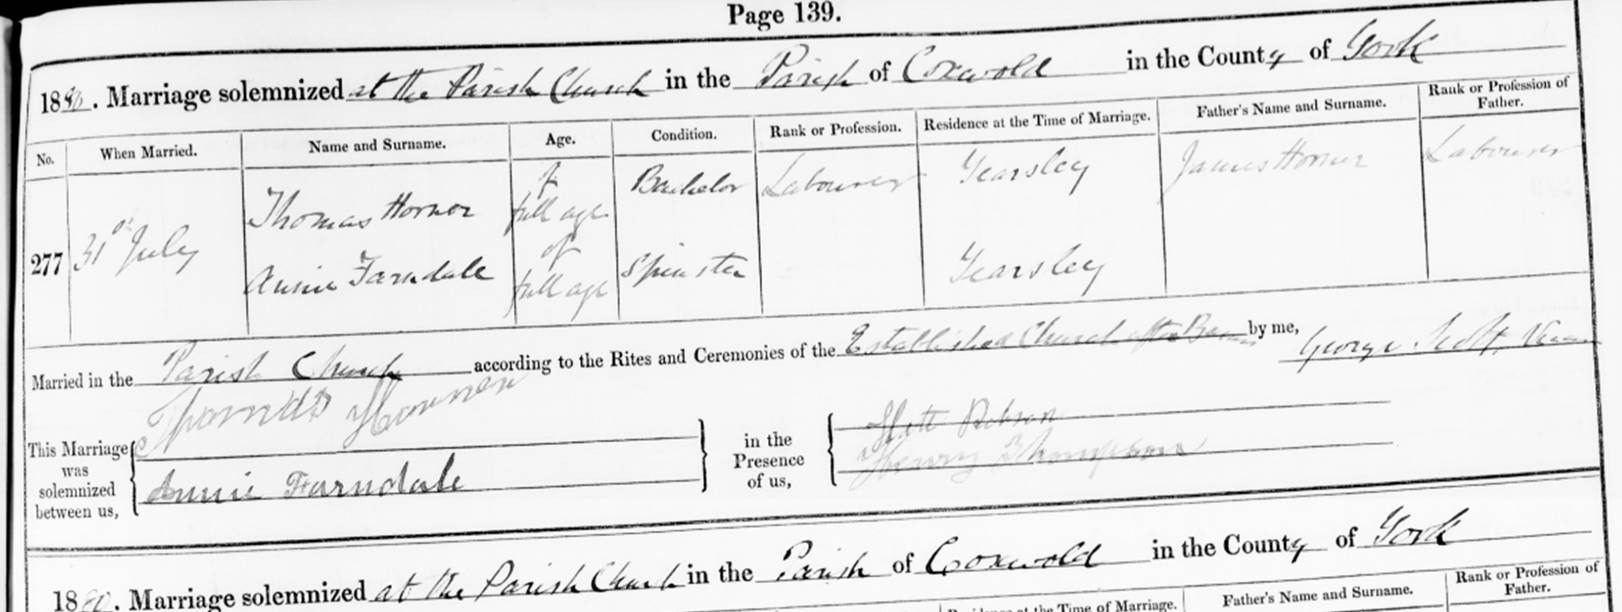 Page 139.
1880. Marriage solemnized at the Parish Church in the Parish of Coxwold in the County of York
No. When Married. Name and Surname. Age. Condition. Rank or Profession. Residence at the Time of Marriage. Father's Name and Surname. Rank or Profession of Father.
277 31st July Thomas Horner of full age Bachelor Labourer Yearsley James Horner Labourer
Annie Farndale of full age Spinster Yearsley
Married in the Parish Church according to the Rites and Ceremonies of the Established Church after Banns by me, George Scott Vicar
This Marriage was solemnized between us, Thomas Horner Annie Farndale in the Presence of us, Robson Henry Thompson
1880. Marriage solemnized at the Parish Church in the Parish of Coxwold in the County of York
at the Time of Marriage. Father's Name and Surname. Rank or Profession of Father.